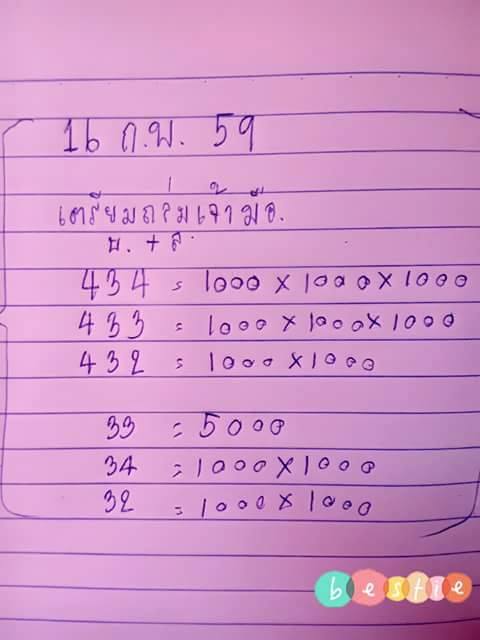 16 ก.พ. 59
เตรียมถล่มเจ้ามือ.
บ. + ล.
434 = 1000 x 1000 x 1000
433 = 1000 x 1000 x 1000
432 = 1000 x 1000
33 = 5000
34 = 1000 x 1000
32 = 1000 x 1000
bestie